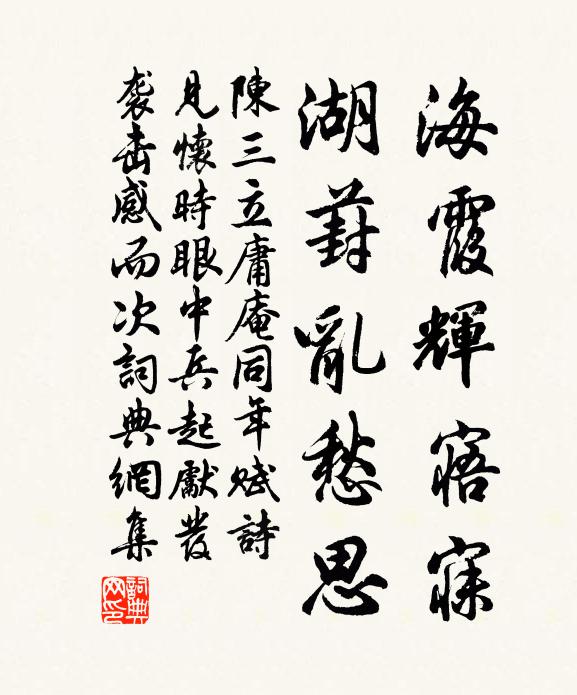 海霞輝寤寐
湖葑亂愁思
陳三立庸庵同年賦詩
見懷時眼中兵起獻發
襲击感而次詞典網集
詞典网印